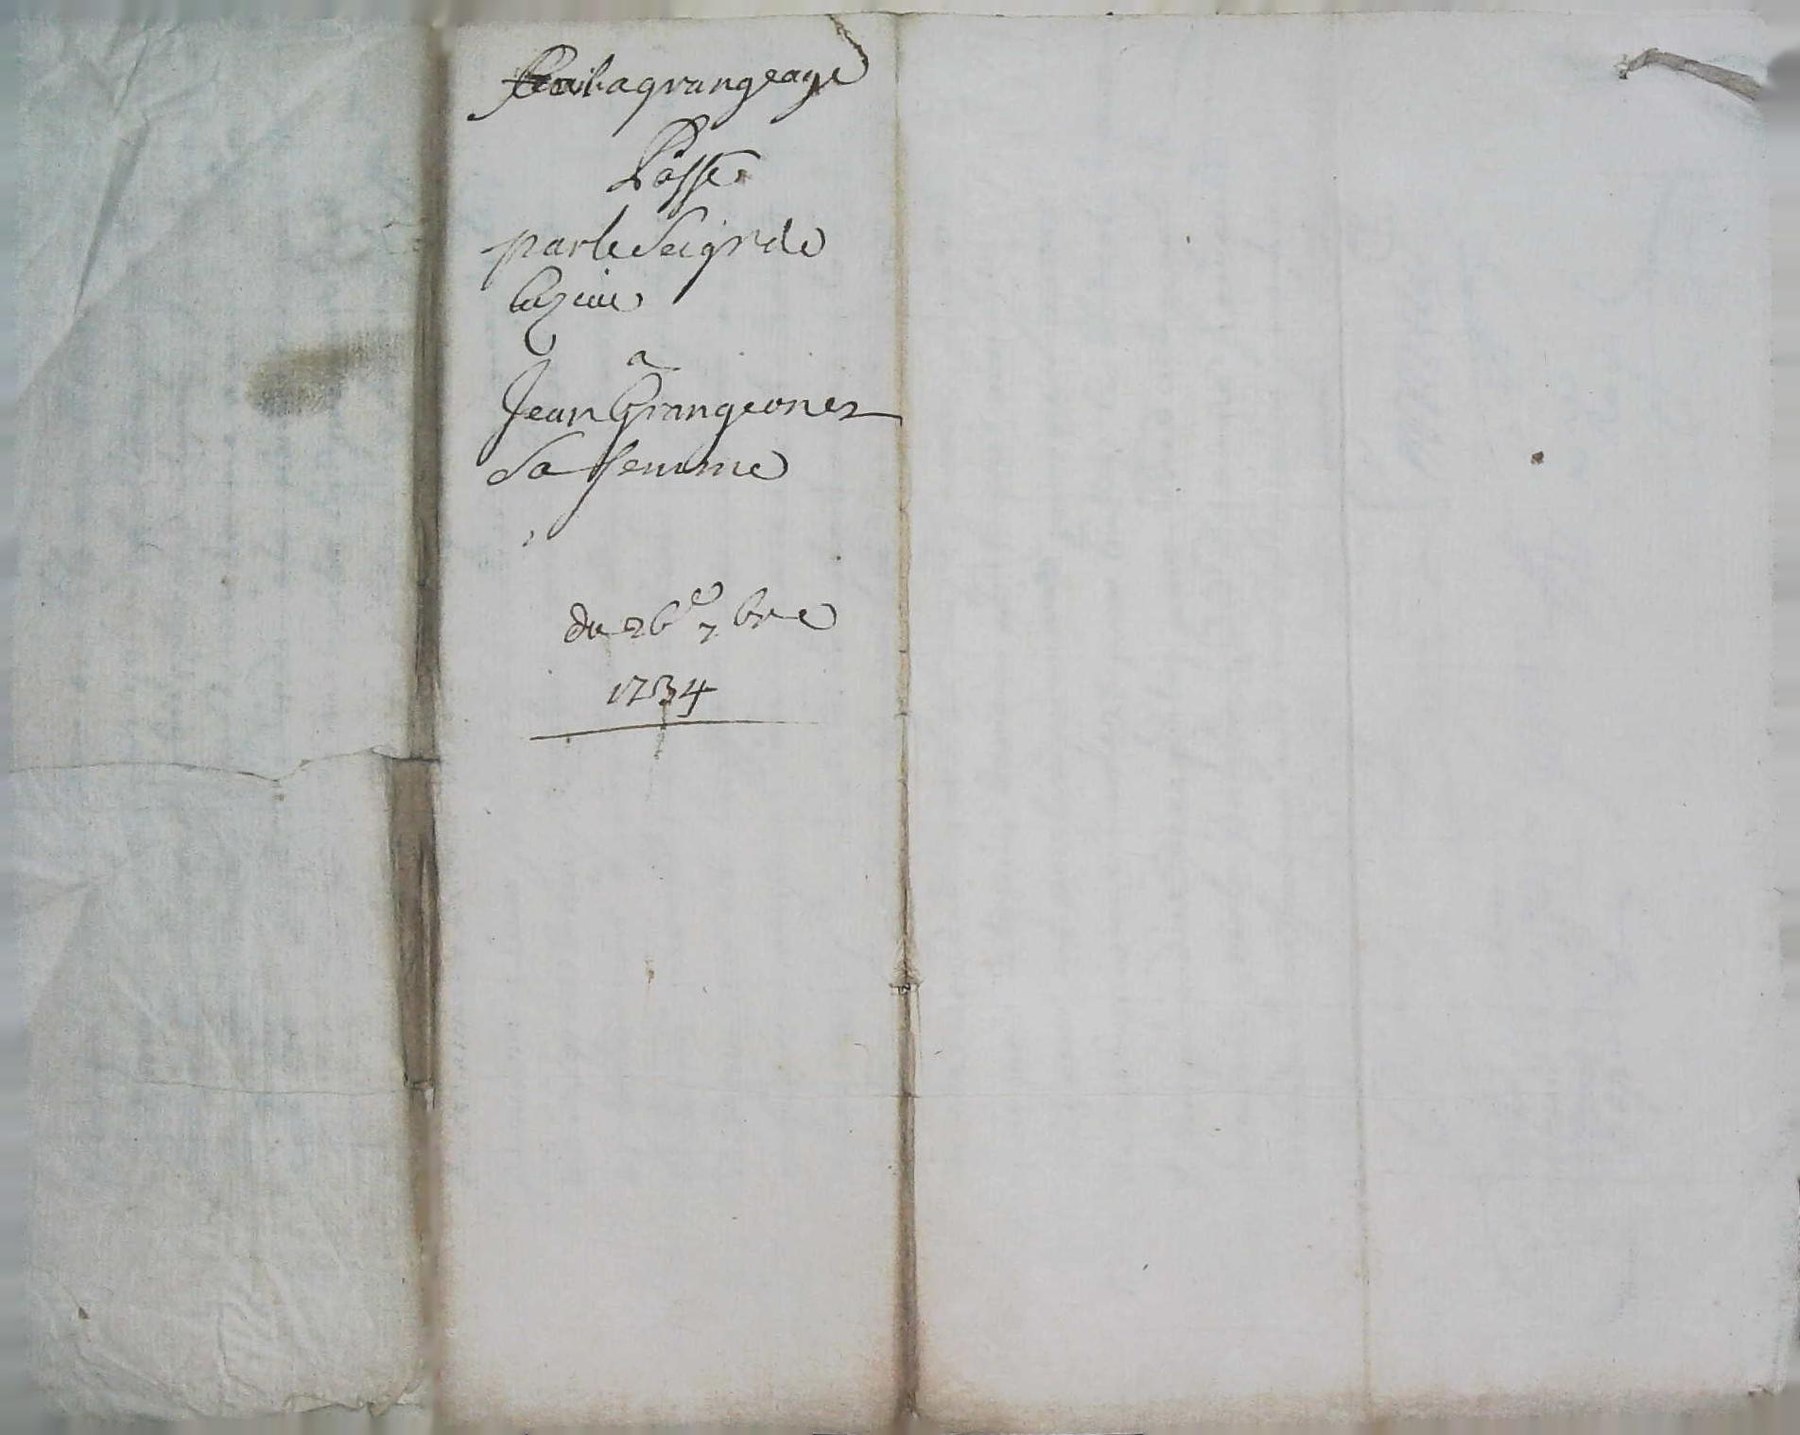 Bail a grangeage
Passe
par le Seigr de
a
Jean Grangeon et
Sa femme
du 26e 7bre
1734